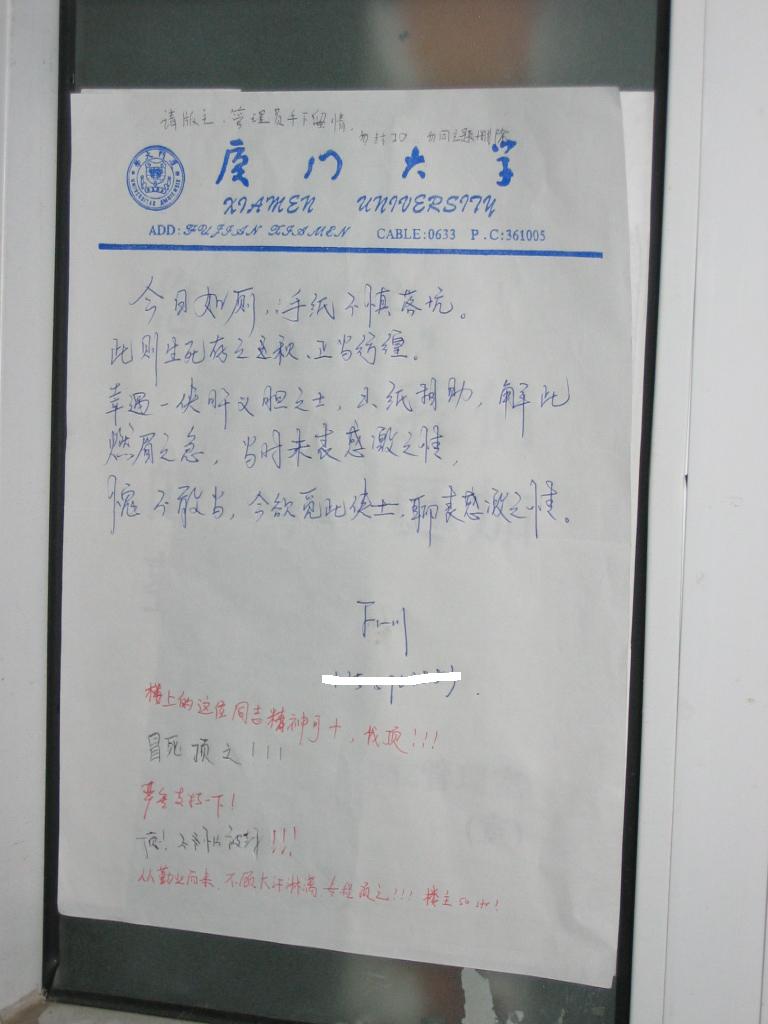 请版主、管理员手下留情,
勿封ID 勿同主题删除
厦门大学
XIAMEN UNIVERSITY
ADD: FUJIAN XIAMEN CABLE:0633 P.C:361005
今日如厕,手纸不慎落坑。
此则生死存亡之秋、正当彷徨。
幸遇一侠肝义胆之士,以纸相助,解此
燃眉之急,当时未表感激之情,
愧不敢当,今欲觅此侠士,聊表感激之情。
楼上的这位同志精神可+,我顶!!!
冒死顶之!!!
梦舍支持一下!
从勤业而来,不顾大汗淋漓,专程顶之!!!楼主